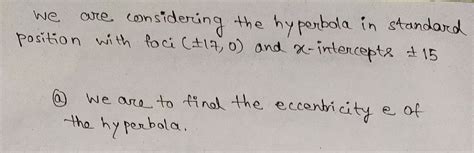 we are considering the hyperbola in standard
position with foci (±17, 0) and x-intercepts ±15
ⓐ we are to find the eccentricity e of
the hyperbola.